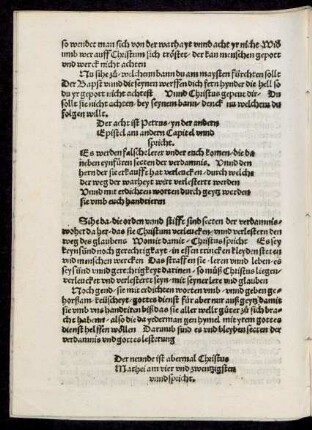 so wendet man sich von der warhayt vnnd acht yr nicht Wid
umb wer auff Christum sich tröstet der kan menschen gepott
vnd werck nicht achten
Nu sihe zů welchem bann du am maysten fürchten sollt
Der Bapst vnnd die seynen werffen dich fern hynder die hell so
du yr gepott nicht achtest Vnnd Christus gepeut dir Du
sollt sie nicht achten bey seynem bann denck nu welchem du
folgen willt.
Der acht ist Petrus yn der andern
Epistel am andern Capitel vnnd
spricht.
Es werden falsche lerer vnder euch komen die da
neben eynfüren secten der verdamnis Vnnd den
herrn der sie erkaufft hat verleucken durch welche
der weg der warheyt wirt verlesterdt werden
Vnnd mit erdichten worten durch geytz werden
sie vmb euch hanndtieren
Sehe da die orden vnnd stifft sind secten der verdamnis
woher da her das sie Christum verleucken vnnd verlestern den
weg des glaubens Womit damit Christus spricht Es sey
keyn sünd noch gerechtigkayt in essen trincken kleydern stetten
vnd menschen wercken Das straffen sie leren vnnd leben es
sey sünd vnnd gerechtigkeyt darinen so můß Christus liegen
verleuckt vnd verlestert seyn mit seyner lere vnd glauben
Noch gend sie mit erdichten worten vmb vnnd geben ge
horsam keüscheyt gottes dienst für aber nur auß geytz damit
sie vmb vns handtiren biß das sie aller wellt gůter zů sich bra
cht habenn also die da yederman gen hymel mit yrem gottes
dienst helffen wöllen Darumb sind es vnd bleyben secten der
verdamnis vnd gottes lesterung
Der neunde ist abermal Christus
Mathei am vier vnd zwentzigsten
vnnd spricht.